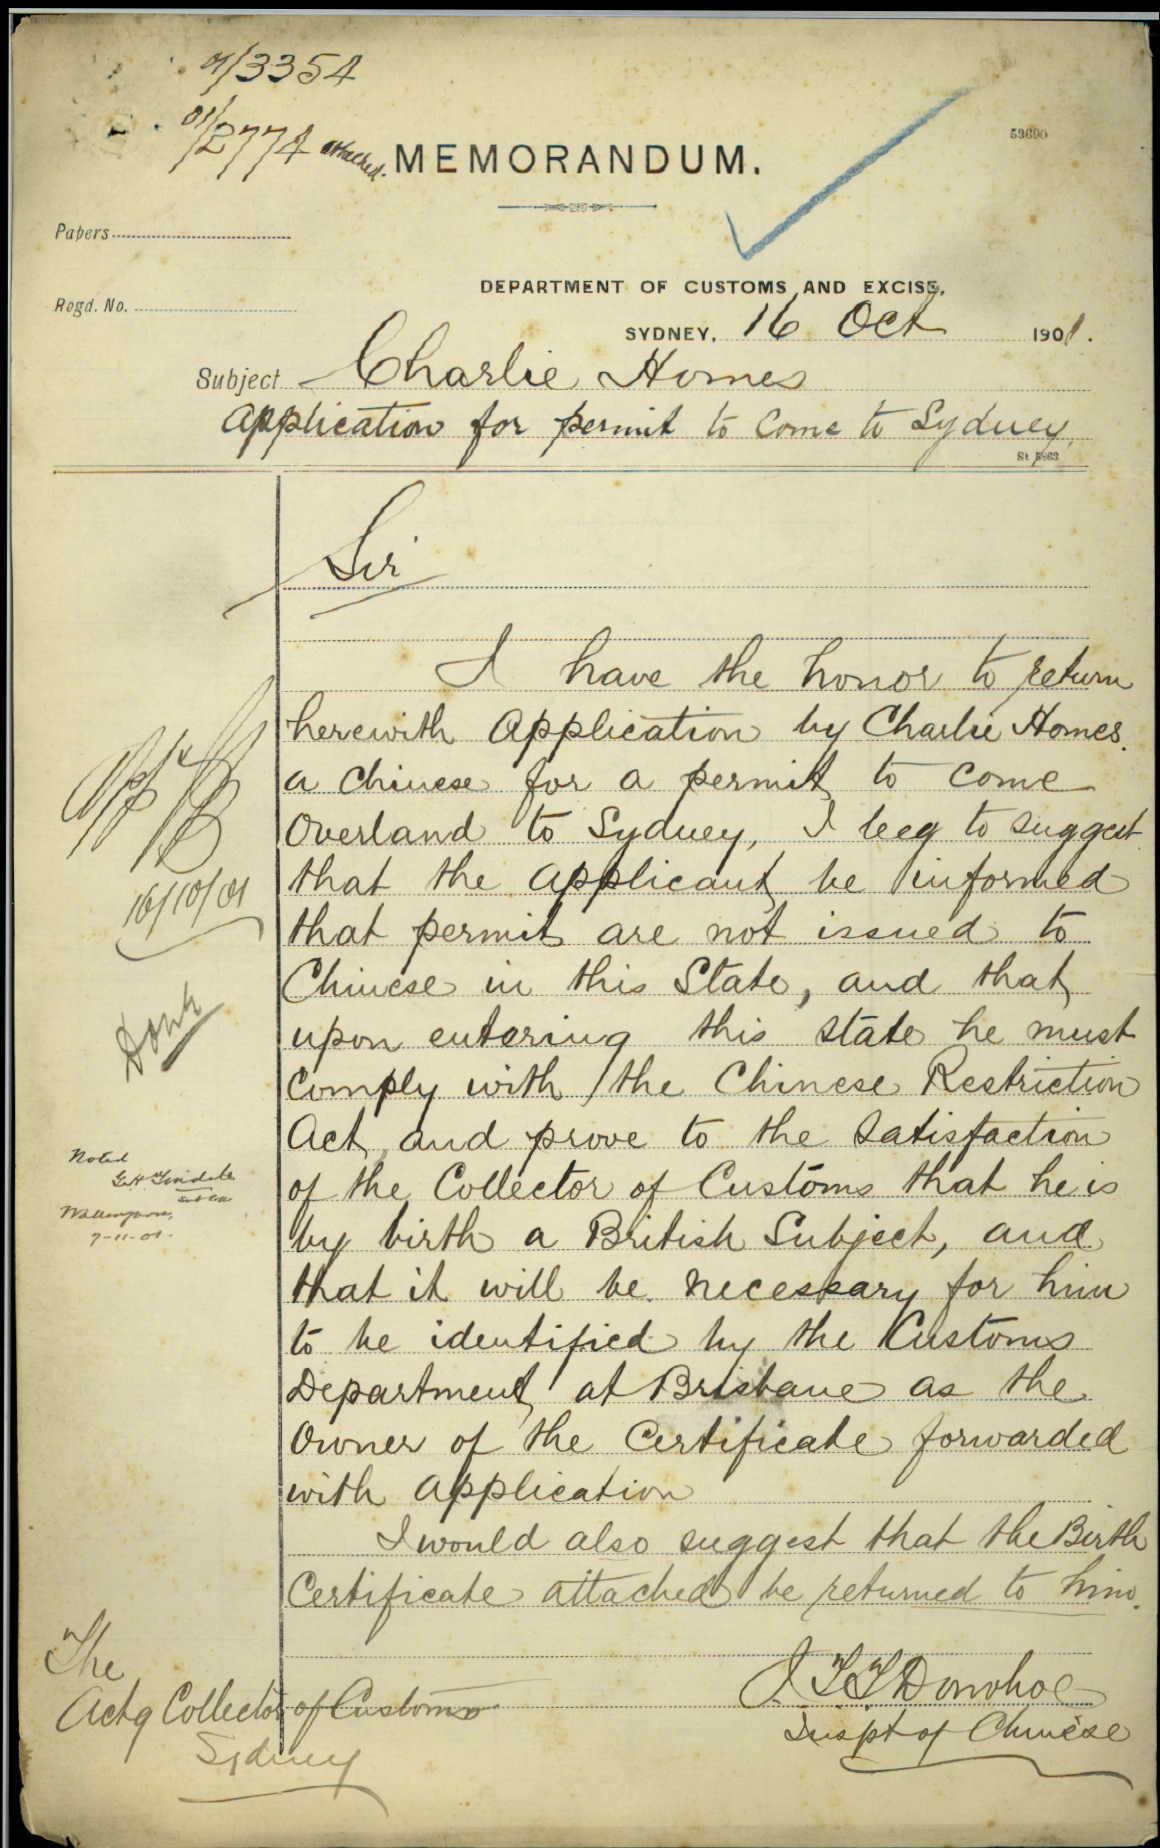 01/3354
01/2774 attached.
MEMORANDUM.
53690
Papers
Regd. No.
DEPARTMENT OF CUSTOMS AND EXCISE,
SYDNEY, 16 Oct 1901.
Subject Charlie Homes
Application for permit to come to Sydney.
Sir
I have the honor to return
herewith Application by Charlie Homes.
a Chinese for a permit to come
Overland to Sydney, I beg to suggest
that the applicant be informed
that permit are not issued to
Chinese in this State, and that
upon entering this state he must
comply with the Chinese Restriction
Act, and prove to the satisfaction
of the Collector of Customs that he is
by birth a British Subject, and
that it will be necessary for him
to be identified by the Customs
Department at Brisbane as the
Owner of the Certificate forwarded
with application
I would also suggest that the Birth
Certificate attached be returned to him.
J. T. T. Donohoe
Inspt of Chinese
The
Actg Collector of Customs
Sydney
16/10/01
Done
Noted
7-11-01.